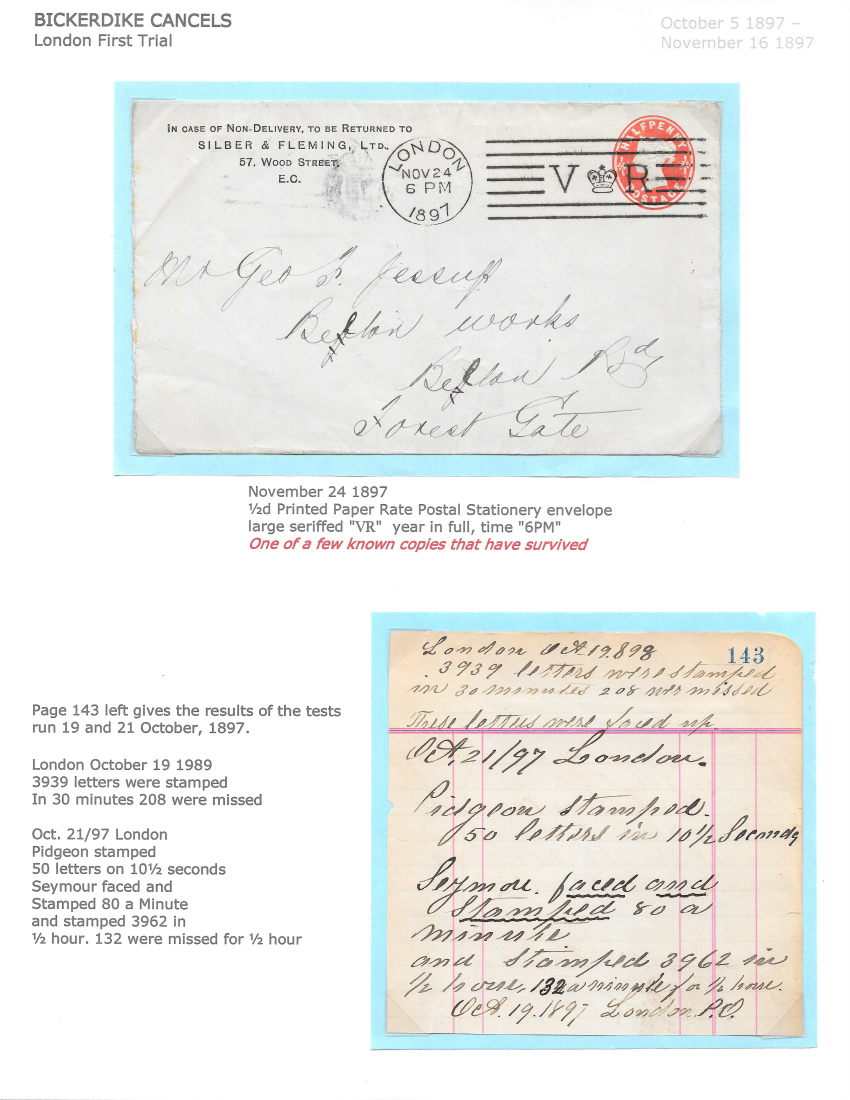 BICKERDIKE CANCELS
London First Trial
October 5 1897 –
November 16 1897
IN CASE OF NON-DELIVERY, TO BE RETURNED TO
SILBER & FLEMING, LTD.,
57, WOOD STREET,
E.C.
LONDON
NOV 24
6 PM
1897
V R
HALFPENNY
POSTAGE
Mr Geo Jessup
works
Rd
Forest Gate
November 24 1897
½d Printed Paper Rate Postal Stationery envelope
large seriffed "VR" year in full, time "6PM"
One of a few known copies that have survived
Page 143 left gives the results of the tests
run 19 and 21 October, 1897.
London October 19 1989
3939 letters were stamped
In 30 minutes 208 were missed
Oct. 21/97 London
Pidgeon stamped
50 letters on 10½ seconds
Seymour faced and
Stamped 80 a Minute
and stamped 3962 in
½ hour. 132 were missed for ½ hour
143
London Oct. 19.898
3939 letters were stamped
in 30 minutes 208 wer missed
These letters were faced up
Oct. 21/97 London.
Pidgeon stamped.
50 letters in 10½ Seconds
Seymour. faced and
Stamped 80 a
minute
and stamped 3962 in
½ houre, 132 a minute for ½ houre.
Oct. 19.1897 London P.O.